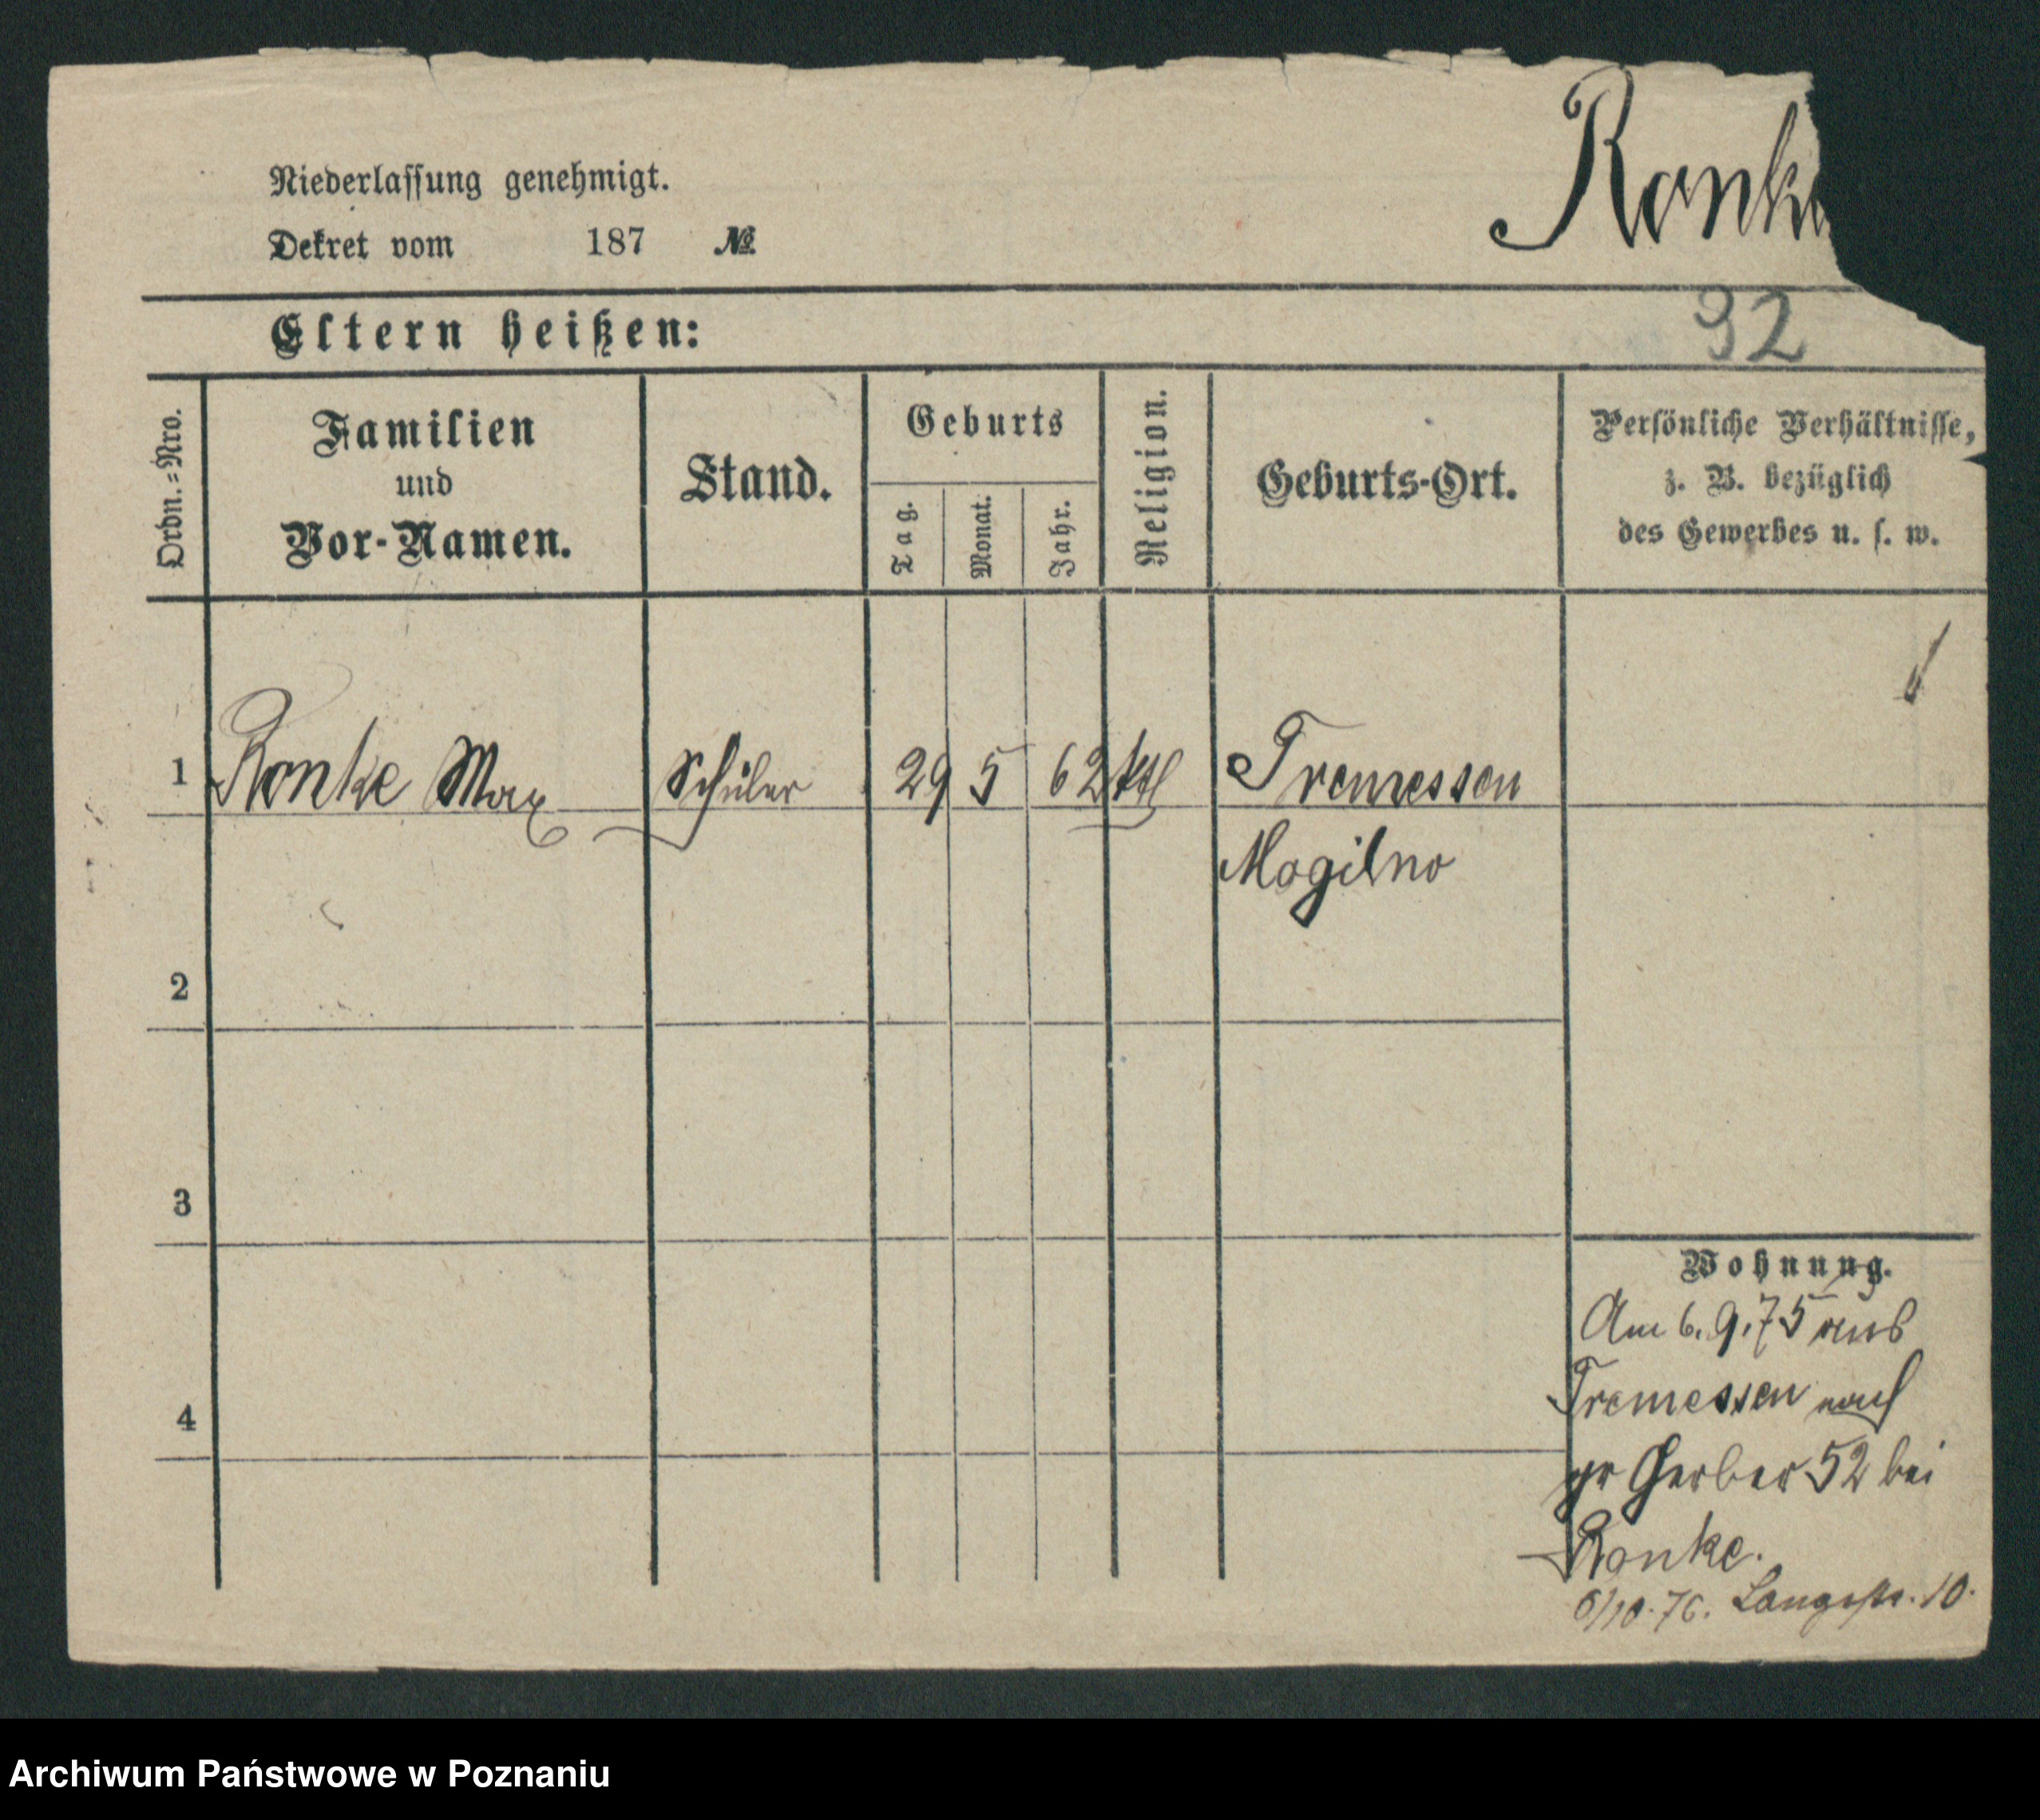 Niederlassung genehmigt.
Dekret vom 187 №
Ranke
32
Eltern heißen:
Ordn.=Nro.
Familien
und
Vor-Namen.
Stand.
Geburts
Tag.
Monat.
Jahr.
Religion.
Geburts-Ort.
Persönliche Verhältnisse,
z. B. bezüglich
des Gewerbes u. s. w.
1 Ranke Max Schüler 29 5 62 ktl Tremessen
Mogilno
2
3
4
Wohnung.
Am 6.9.75 aus
Tremessen nach
gr Gerber 52 bei
Ranke.
6/10.76. Langestr. 10.
Archiwum Państwowe w Poznaniu